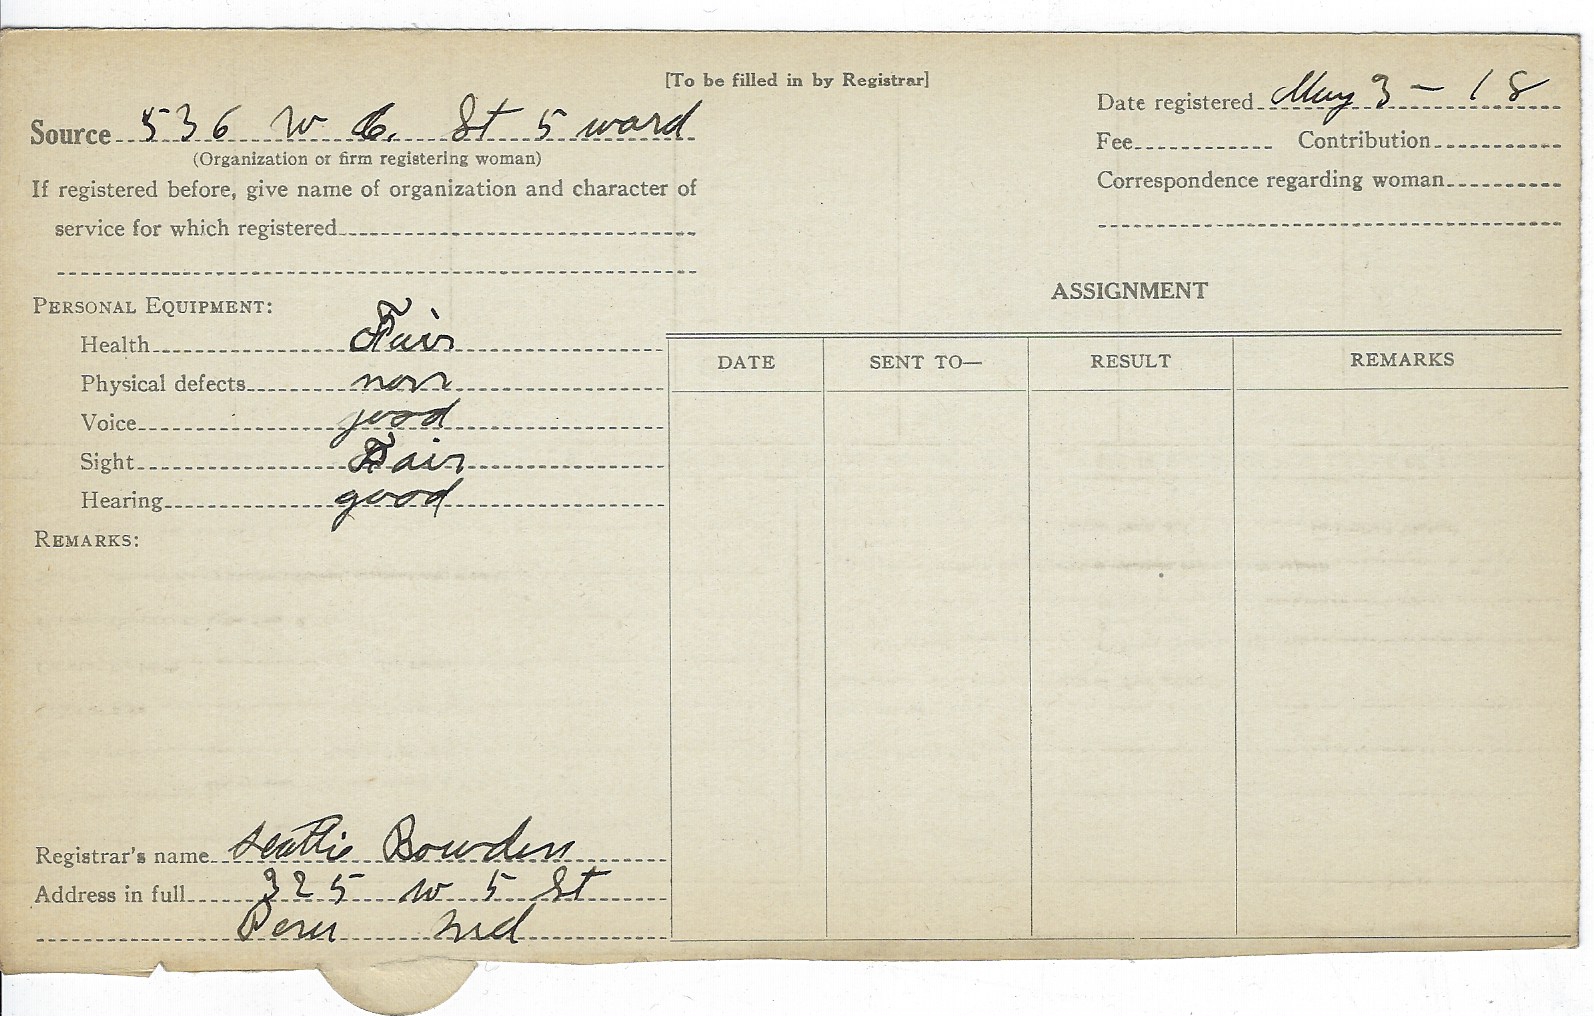 [To be filled in by Registrar]
Source 536 W 6. St 5 ward
(Organization or firm registering woman)
If registered before, give name of organization and character of
service for which registered
Date registered May 3 - 18
Fee Contribution
Correspondence regarding woman
PERSONAL EQUIPMENT:
Health Fair
Physical defects non
Voice good
Sight Fair
Hearing good
REMARKS:
ASSIGNMENT
DATE SENT TO— RESULT REMARKS
Registrar's name Bowden
Address in full 325 W 5 St
Peru Ind